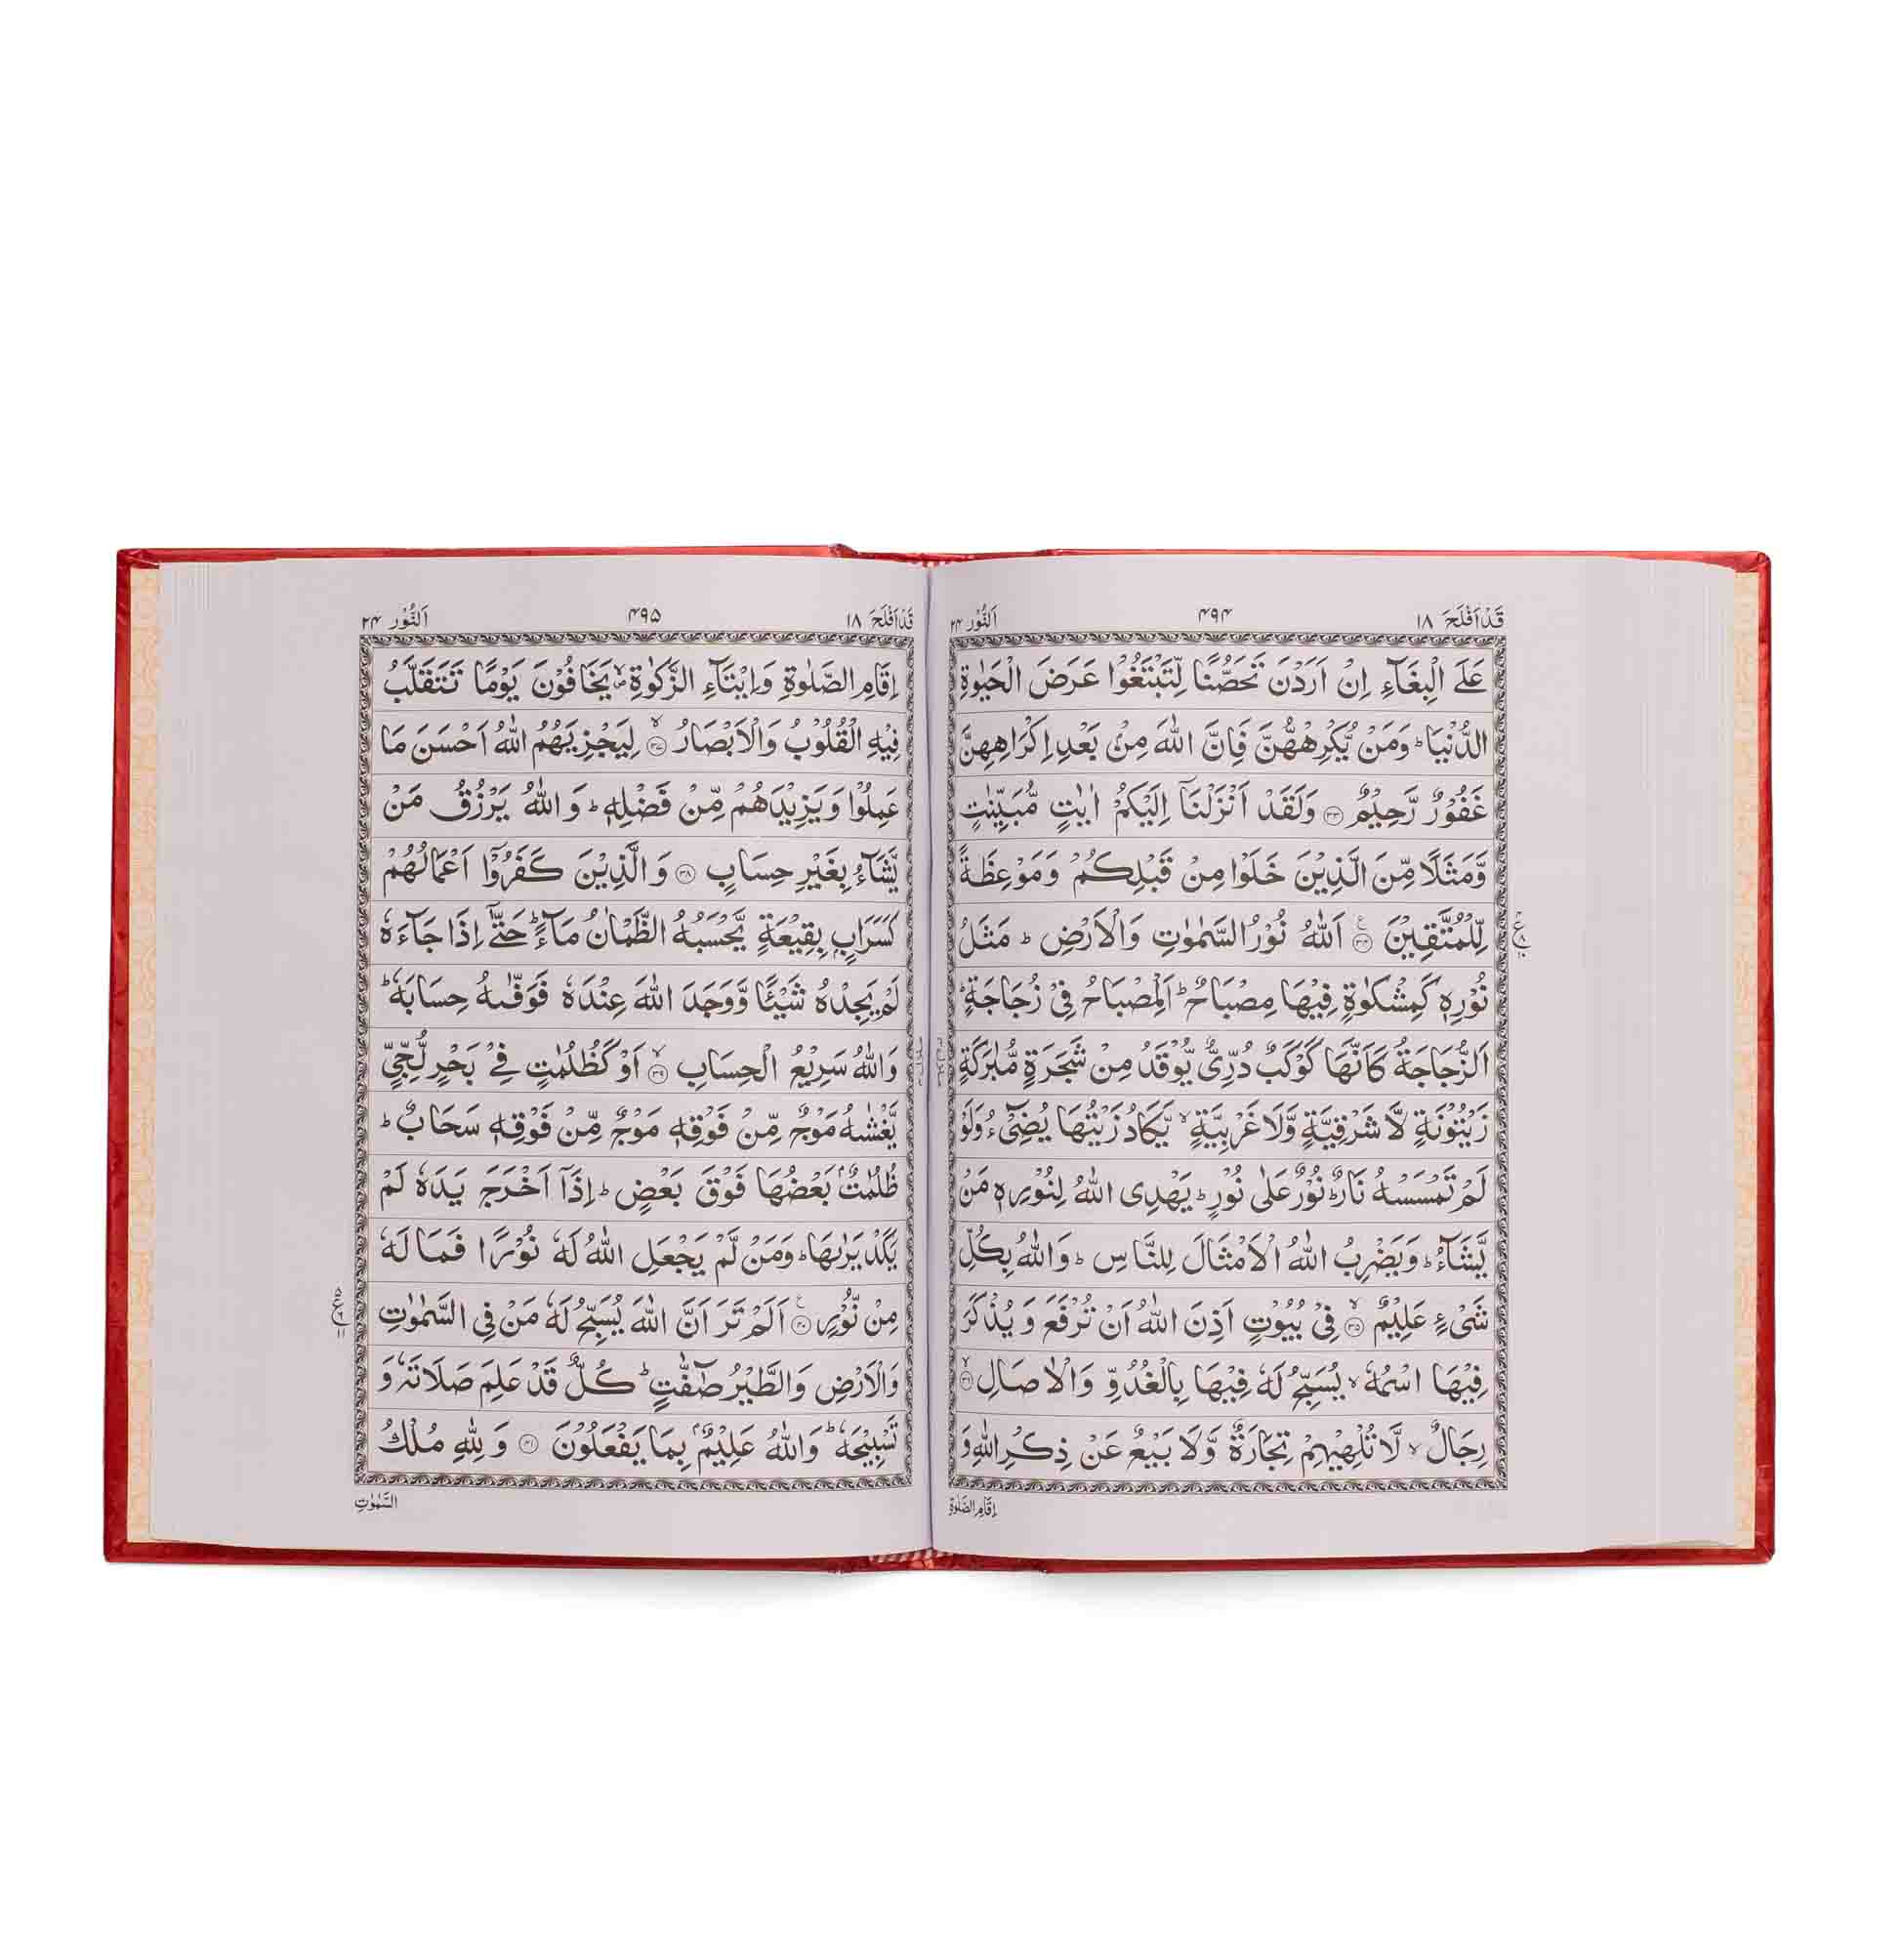 قَدْ اَفْلَحَ ۱۸
۴۹۴
اَلنُّوْر ۲۴
عَلَى الْبِغَآءِ اِنْ اَرَدْنَ تَحَصُّنًا لِّتَبْتَغُوْا عَرَضَ الْحَيٰوةِ
الدُّنْيَا ؕ وَمَنْ يُّكْرِهْهُّنَّ فَاِنَّ اللّٰهَ مِنْۢ بَعْدِ اِكْرَاهِهِنَّ
غَفُوْرٌ رَّحِيْمٌ ﴿۳۳﴾ وَلَقَدْ اَنْزَلْنَاۤ اِلَيْكُمْ اٰيٰتٍ مُّبَيِّنٰتٍ
وَّمَثَلًا مِّنَ الَّذِيْنَ خَلَوْا مِنْ قَبْلِكُمْ وَمَوْعِظَةً
لِّلْمُتَّقِيْنَ ﴿۳۴﴾ اَللّٰهُ نُوْرُ السَّمٰوٰتِ وَالْاَرْضِ ؕ مَثَلُ
نُوْرِهٖ كَمِشْكٰوةٍ فِيْهَا مِصْبَاحٌ ؕ اَلْمِصْبَاحُ فِيْ زُجَاجَةٍ ؕ
اَلزُّجَاجَةُ كَاَنَّهَا كَوْكَبٌ دُرِّيٌّ يُّوْقَدُ مِنْ شَجَرَةٍ مُّبٰرَكَةٍ
زَيْتُوْنَةٍ لَّا شَرْقِيَّةٍ وَّلَا غَرْبِيَّةٍ ۙ يَّكَادُ زَيْتُهَا يُضِيْٓءُ وَلَوْ
لَمْ تَمْسَسْهُ نَارٌ ؕ نُوْرٌ عَلٰى نُوْرٍ ؕ يَهْدِى اللّٰهُ لِنُوْرِهٖ مَنْ
يَّشَآءُ ؕ وَيَضْرِبُ اللّٰهُ الْاَمْثَالَ لِلنَّاسِ ؕ وَاللّٰهُ بِكُلِّ
شَىْءٍ عَلِيْمٌ ﴿۳۵﴾ ۙ فِيْ بُيُوْتٍ اَذِنَ اللّٰهُ اَنْ تُرْفَعَ وَيُذْكَرَ
فِيْهَا اسْمُهٗ ۙ يُسَبِّحُ لَهٗ فِيْهَا بِالْغُدُوِّ وَالْاٰصَالِ ﴿۳۶﴾ ۙ
رِجَالٌ ۙ لَّا تُلْهِيْهِمْ تِجَارَةٌ وَّلَا بَيْعٌ عَنْ ذِكْرِ اللّٰهِ وَ
اِقَامِ الصَّلٰوةِ
قَدْ اَفْلَحَ ۱۸
۴۹۵
اَلنُّوْر ۲۴
اِقَامِ الصَّلٰوةِ وَاِيْتَآءِ الزَّكٰوةِ ۙ يَخَافُوْنَ يَوْمًا تَتَقَلَّبُ
فِيْهِ الْقُلُوْبُ وَالْاَبْصَارُ ﴿۳۷﴾ ۙ لِيَجْزِيَهُمُ اللّٰهُ اَحْسَنَ مَا
عَمِلُوْا وَيَزِيْدَهُمْ مِّنْ فَضْلِهٖ ؕ وَاللّٰهُ يَرْزُقُ مَنْ
يَّشَآءُ بِغَيْرِ حِسَابٍ ﴿۳۸﴾ وَالَّذِيْنَ كَفَرُوْۤا اَعْمَالُهُمْ
كَسَرَابٍۭ بِقِيْعَةٍ يَّحْسَبُهُ الظَّمْاٰنُ مَآءً ؕ حَتّٰۤى اِذَا جَآءَهٗ
لَمْ يَجِدْهُ شَيْـًٔا وَّوَجَدَ اللّٰهَ عِنْدَهٗ فَوَفّٰىهُ حِسَابَهٗ ؕ
وَاللّٰهُ سَرِيْعُ الْحِسَابِ ﴿۳۹﴾ ۙ اَوْ كَظُلُمٰتٍ فِيْ بَحْرٍ لُّجِّيٍّ
يَّغْشٰىهُ مَوْجٌ مِّنْ فَوْقِهٖ مَوْجٌ مِّنْ فَوْقِهٖ سَحَابٌ ؕ
ظُلُمٰتٌۢ بَعْضُهَا فَوْقَ بَعْضٍ ؕ اِذَاۤ اَخْرَجَ يَدَهٗ لَمْ
يَكَدْ يَرٰىهَا ؕ وَمَنْ لَّمْ يَجْعَلِ اللّٰهُ لَهٗ نُوْرًا فَمَا لَهٗ
مِنْ نُّوْرٍ ﴿۴۰﴾ اَلَمْ تَرَ اَنَّ اللّٰهَ يُسَبِّحُ لَهٗ مَنْ فِى السَّمٰوٰتِ
وَالْاَرْضِ وَالطَّيْرُ صٰٓفّٰتٍ ؕ كُلٌّ قَدْ عَلِمَ صَلَاتَهٗ وَ
تَسْبِيْحَهٗ ؕ وَاللّٰهُ عَلِيْمٌۢ بِمَا يَفْعَلُوْنَ ﴿۴۱﴾ وَلِلّٰهِ مُلْكُ
السَّمٰوٰتِ